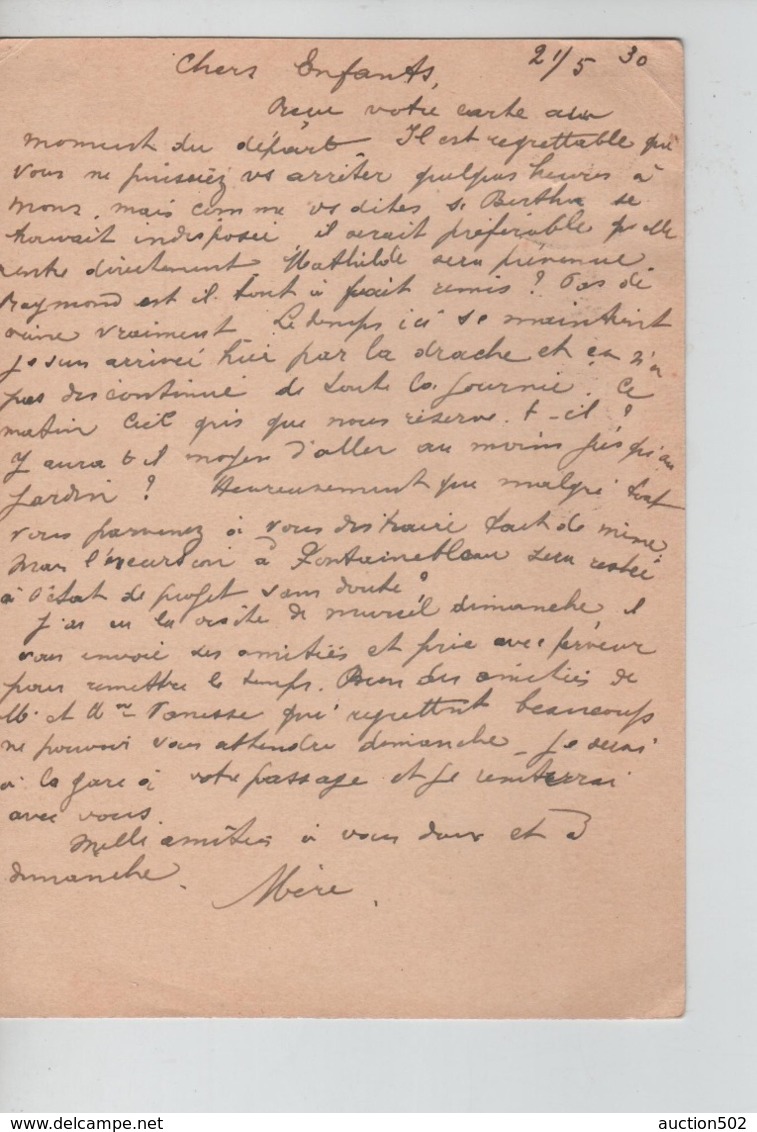 Chers Enfants, 21/5 30
Reçu votre carte au
moment du départ Il est regrettable que
vous ne puissiez vs arrêter quelques heures à
Mons, mais comme vs dites si Bertha se
trouvait indisposée il serait préférable qu'elle
rentre directement Mathilde sera prévenue
Raymond est il tout à fait remis? Pas de
veine vraiment. Le temps ici se maintient
je suis arrivée hier par la drache et ça n'a
pas discontinué de toute la journée. Ce
matin Ciel gris que nous réserve-t-il?
Y aura t il moyen d'aller au moins jusqu'au
jardin? Heureusement que malgré tout
vous parvenez à vous distraire tout de même.
Mais l'excursion à Fontainebleau sera restée
à l'état de projet sans doute?
J'ai eu la visite de Marcel dimanche il
vous envoie ses amitiés et prie avec ferveur
pour remettre le temps. Bien des amitiés de
Mr et Mme Vanesse qui regrettent beaucoup
ne pouvoir vous attendre dimanche _ Je serai
à la gare à votre passage et je rentrerai
avec vous.
Mille amitiés à vous deux et à
dimanche.
Mère.
auction502